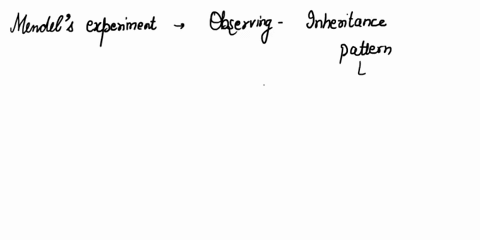 Mendel's experiment → Observing - Inheritance
pattern
L